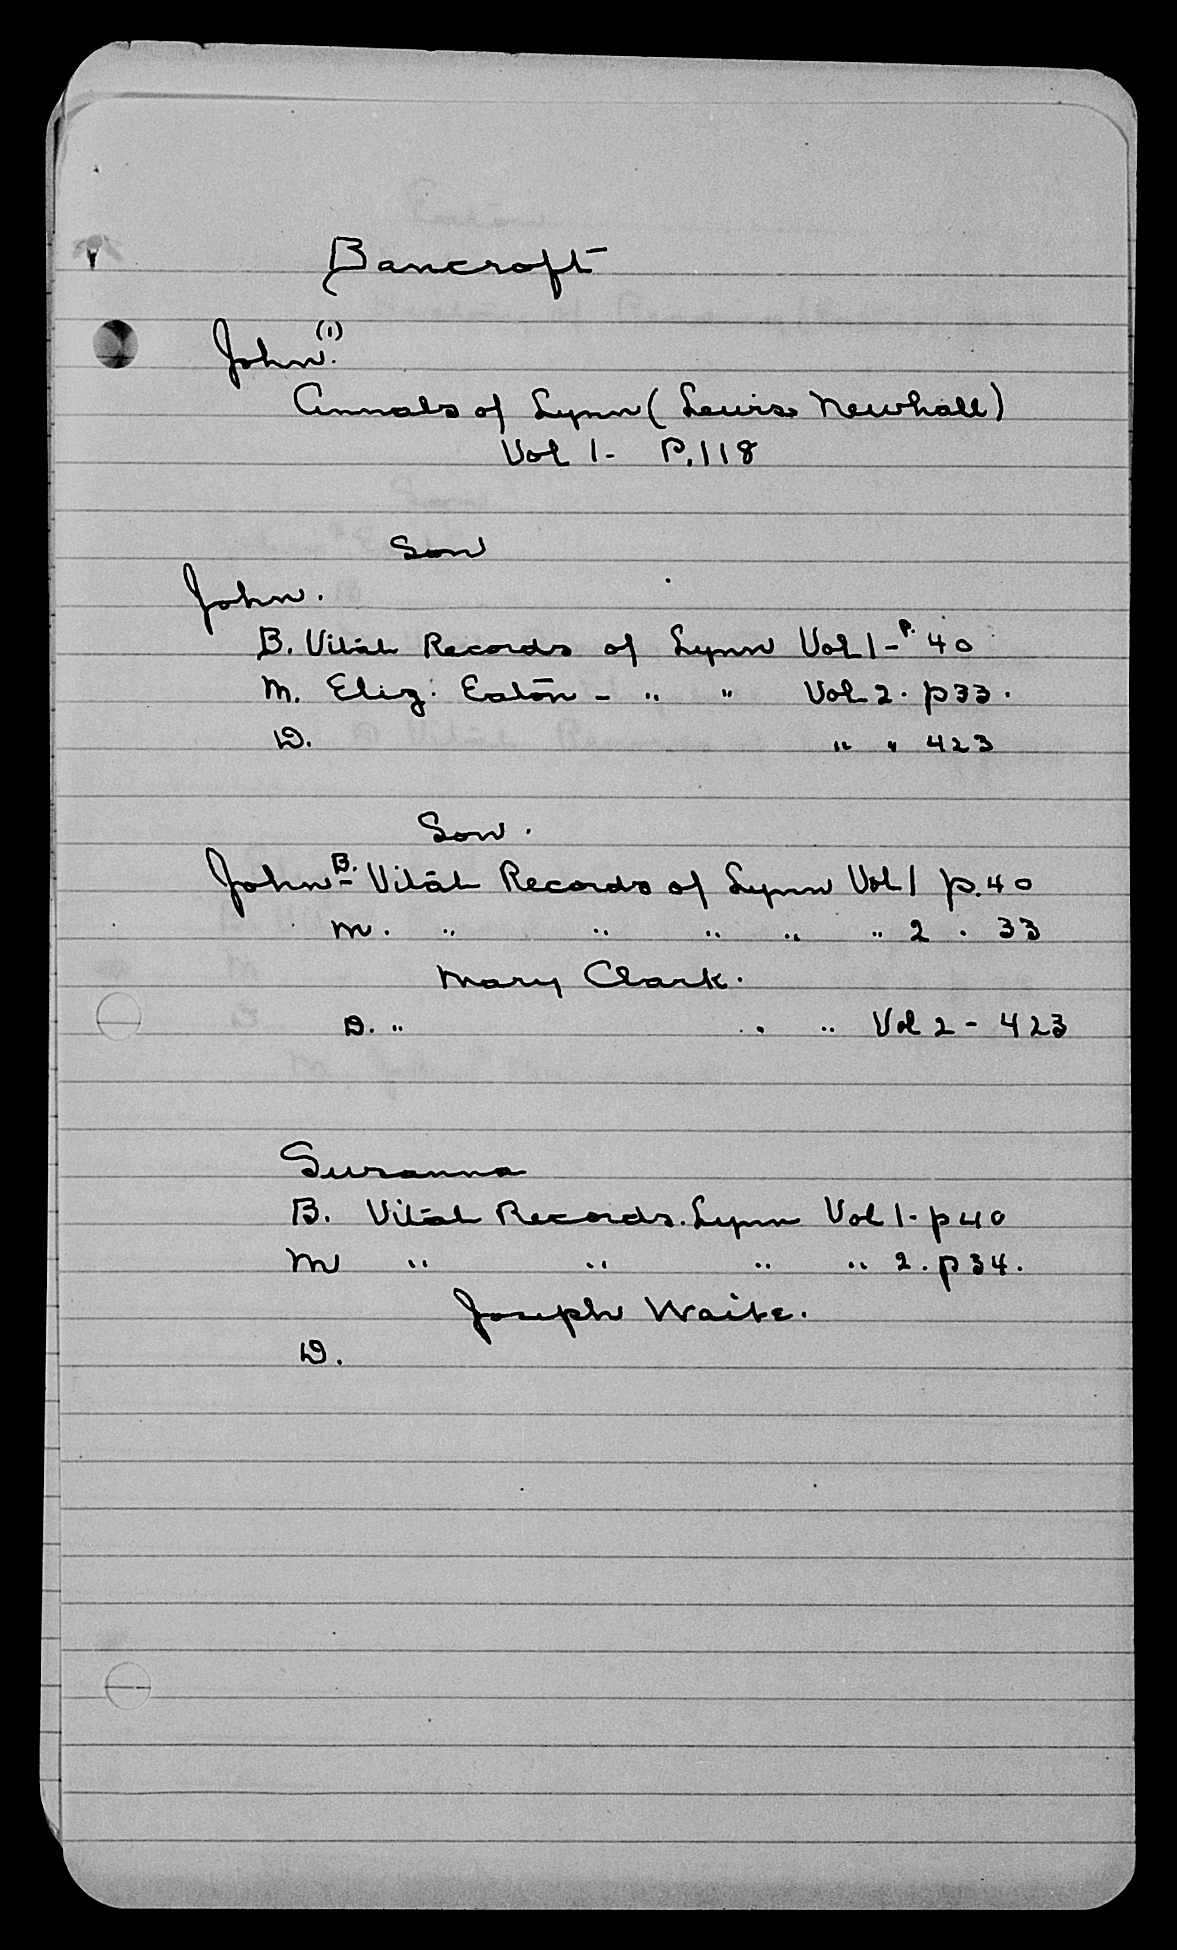 Bancroft
John (1).
Annals of Lynn (Lewis Newhall)
Vol 1- P. 118
Son
John.
B. Vital Records of Lynn Vol 1- P. 40
M. Eliz. Eaton - " " Vol 2. p 33.
D. " " 423
Son.
John B.- Vital Records of Lynn Vol 1 p. 40
M. " " " " " 2 . 33
Mary Clark.
D. " . " Vol 2 - 423
Susanna
B. Vital Records. Lynn Vol 1. p 40
M " " " " 2. p 34.
Joseph Waite.
D.